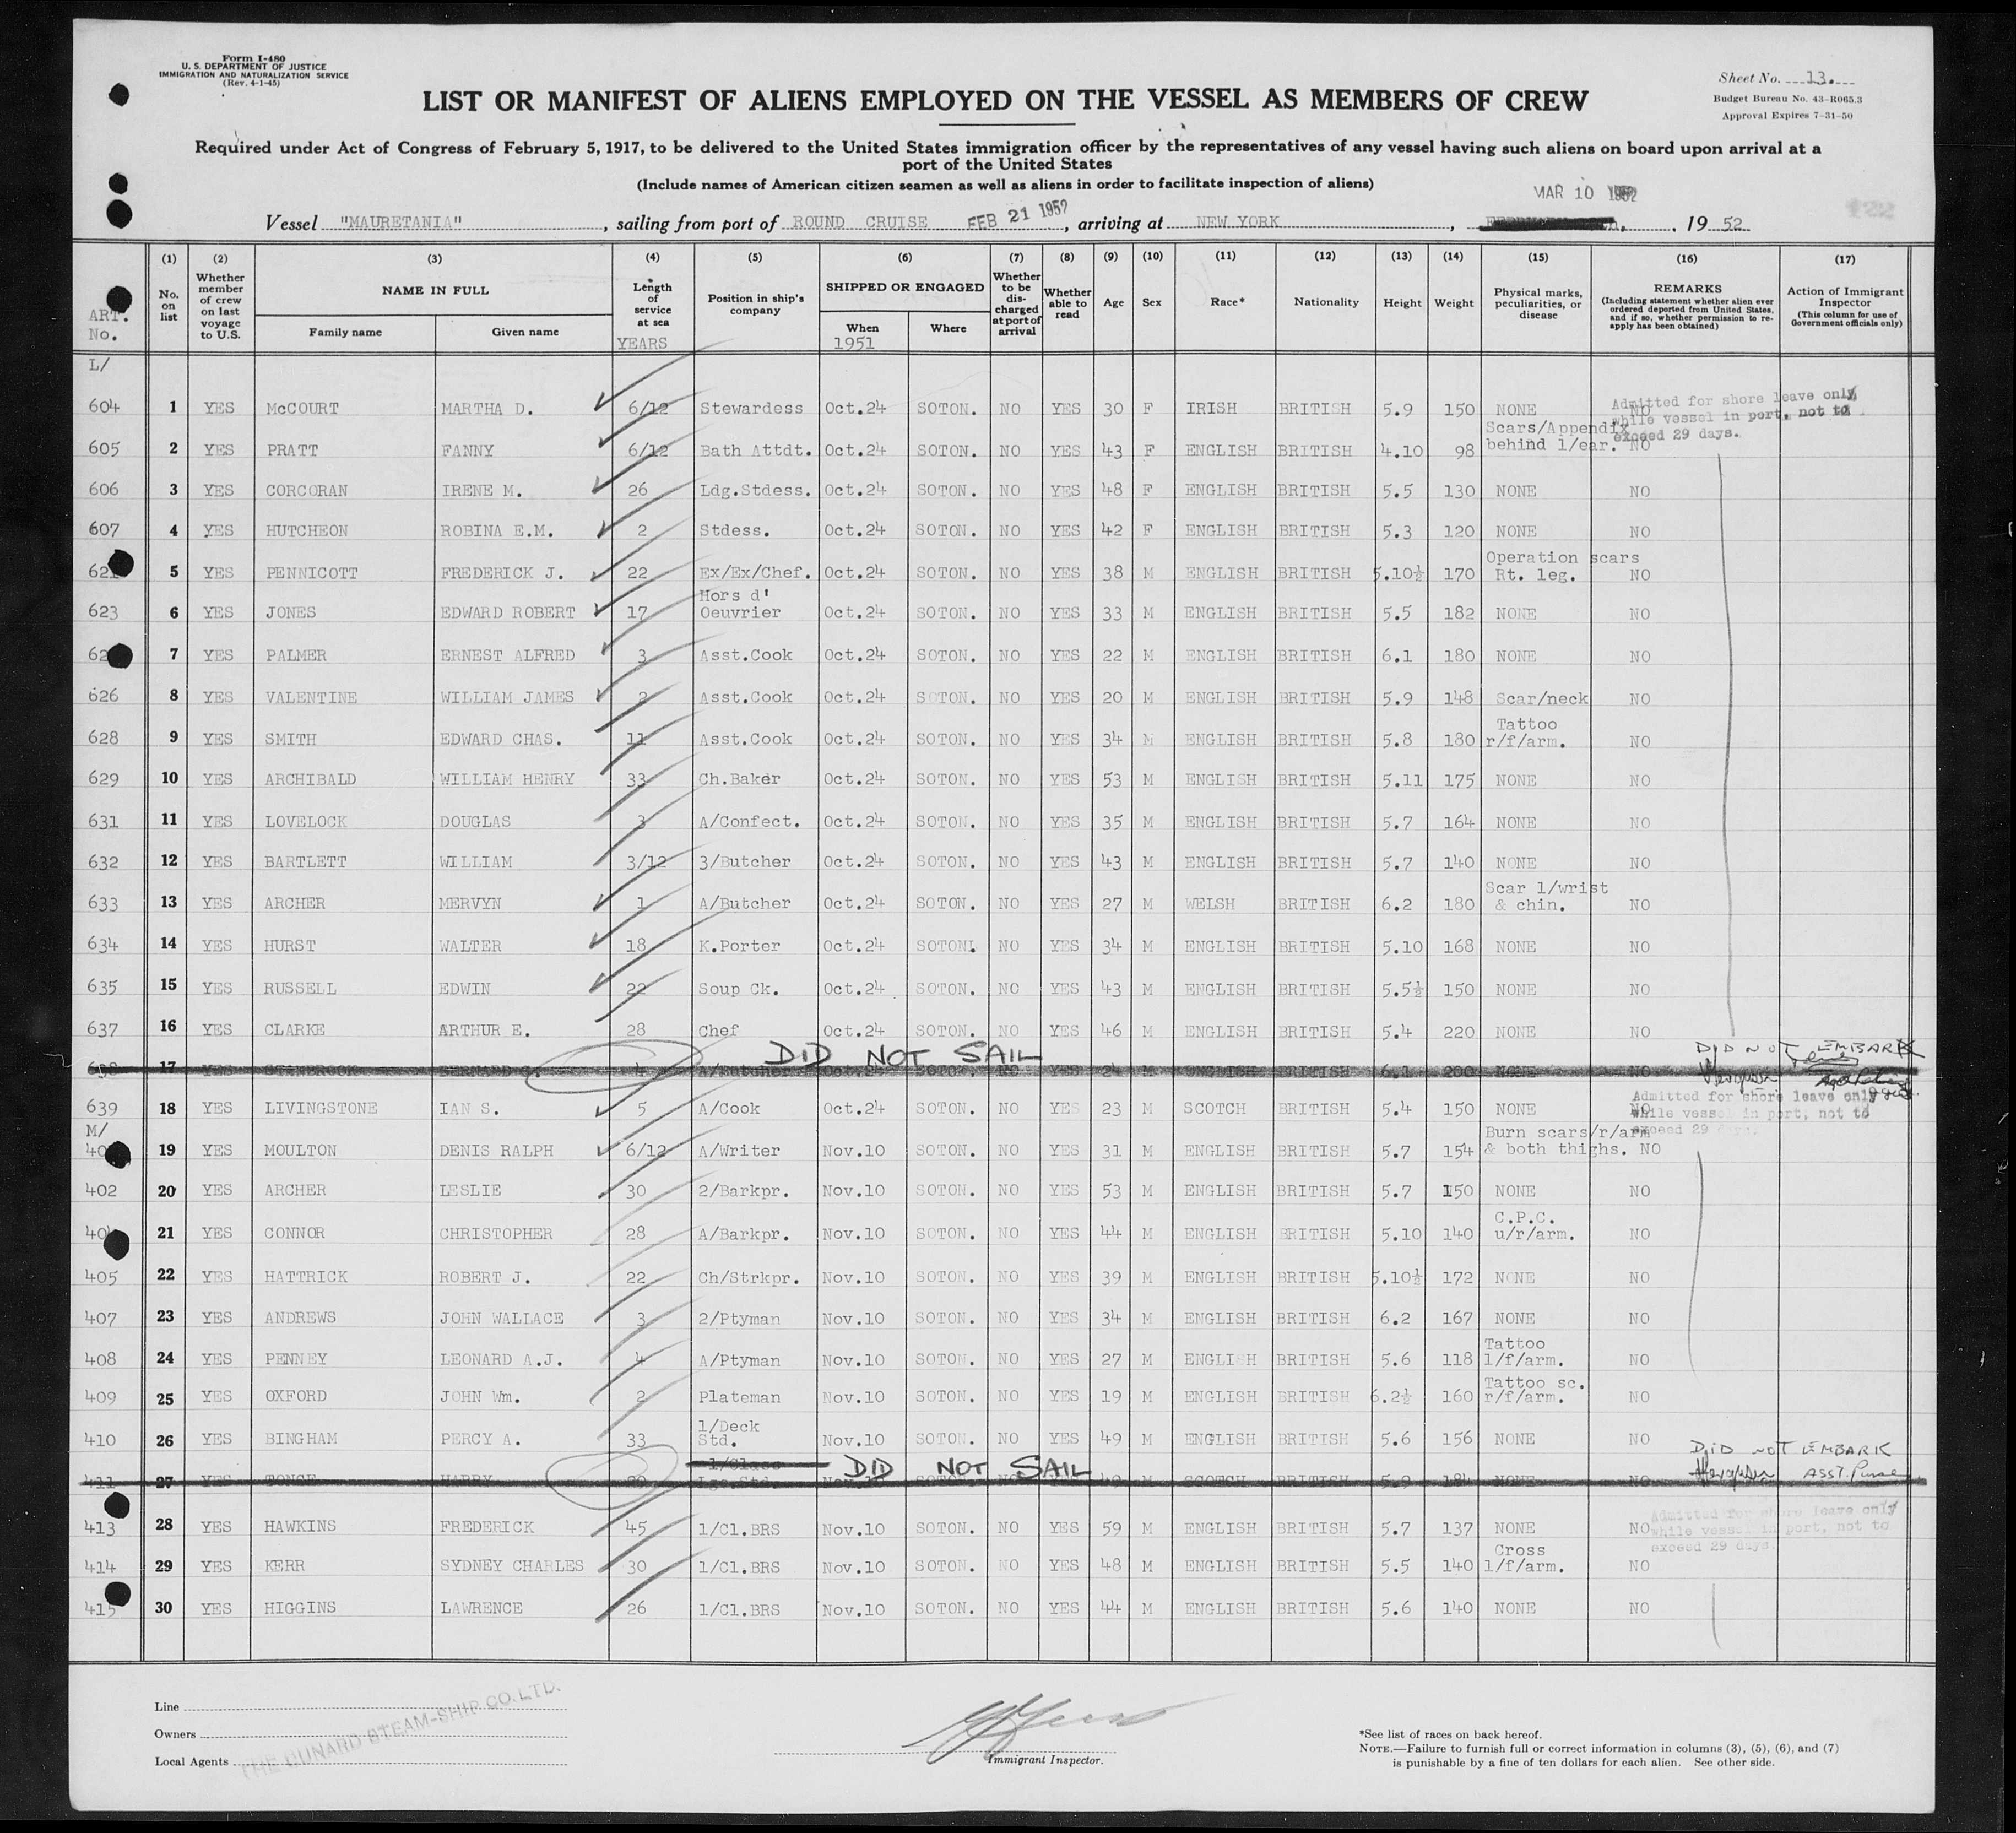 Form I-480
U. S. DEPARTMENT OF JUSTICE
IMMIGRATION AND NATURALIZATION SERVICE
(Rev. 4-1-45)
Sheet No. 13.
Budget Bureau No. 43-R065.3
Approval Expires 7-31-50
LIST OR MANIFEST OF ALIENS EMPLOYED ON THE VESSEL AS MEMBERS OF CREW
Required under Act of Congress of February 5, 1917, to be delivered to the United States immigration officer by the representatives of any vessel having such aliens on board upon arrival at a
port of the United States
(Include names of American citizen seamen as well as aliens in order to facilitate inspection of aliens)
MAR 10 1952
Vessel "MAURETANIA", sailing from port of ROUND CRUISE FEB 21 1952, arriving at NEW YORK, 1952
122
(1) (2) (3) (4) (5) (6) (7) (8) (9) (10) (11) (12) (13) (14) (15) (16) (17)
ART. No.
No. on list
Whether member of crew on last voyage to U.S.
NAME IN FULL
Family name
Given name
Length of service at sea
YEARS
Position in ship's company
SHIPPED OR ENGAGED
When
1951
Where
Whether to be discharged at port of arrival
Whether able to read
Age
Sex
Race*
Nationality
Height
Weight
Physical marks, peculiarities, or disease
REMARKS
(Including statement whether alien ever ordered deported from United States, and if so, whether permission to reapply has been obtained)
Action of Immigrant Inspector
(This column for use of Government officials only)
L/
604 1 YES McCOURT MARTHA D. 6/12 Stewardess Oct.24 SOTON. NO YES 30 F IRISH BRITISH 5.9 150 NONE NO
Admitted for shore leave only
while vessel in port, not to
exceed 29 days.
605 2 YES PRATT FANNY 6/12 Bath Attdt. Oct.24 SOTON. NO YES 43 F ENGLISH BRITISH 4.10 98 Scars/Appendix behind l/ear. NO
606 3 YES CORCORAN IRENE M. 26 Ldg.Stdess. Oct.24 SOTON. NO YES 48 F ENGLISH BRITISH 5.5 130 NONE NO
607 4 YES HUTCHEON ROBINA E.M. 2 Stdess. Oct.24 SOTON. NO YES 42 F ENGLISH BRITISH 5.3 120 NONE NO
5 YES PENNICOTT FREDERICK J. 22 Ex/Ex/Chef. Oct.24 SOTON. NO YES 38 M ENGLISH BRITISH 5.10½ 170 Operation scars Rt. leg. NO
623 6 YES JONES EDWARD ROBERT 17 Hors d' Oeuvrier Oct.24 SOTON. NO YES 33 M ENGLISH BRITISH 5.5 182 NONE NO
7 YES PALMER ERNEST ALFRED 3 Asst.Cook Oct.24 SOTON. NO YES 22 M ENGLISH BRITISH 6.1 180 NONE NO
626 8 YES VALENTINE WILLIAM JAMES 2 Asst.Cook Oct.24 SOTON. NO YES 20 M ENGLISH BRITISH 5.9 148 Scar/neck NO
628 9 YES SMITH EDWARD CHAS. 11 Asst.Cook Oct.24 SOTON. NO YES 34 M ENGLISH BRITISH 5.8 180 Tattoo r/f/arm. NO
629 10 YES ARCHIBALD WILLIAM HENRY 33 Ch.Baker Oct.24 SOTON. NO YES 53 M ENGLISH BRITISH 5.11 175 NONE NO
631 11 YES LOVELOCK DOUGLAS 3 A/Confect. Oct.24 SOTON. NO YES 35 M ENGLISH BRITISH 5.7 164 NONE NO
632 12 YES BARTLETT WILLIAM 3/12 3/Butcher Oct.24 SOTON. NO YES 43 M ENGLISH BRITISH 5.7 140 NONE NO
633 13 YES ARCHER MERVYN 1 A/Butcher Oct.24 SOTON. NO YES 27 M WELSH BRITISH 6.2 180 Scar l/wrist & chin. NO
634 14 YES HURST WALTER 18 K.Porter Oct.24 SOTON. NO YES 34 M ENGLISH BRITISH 5.10 168 NONE NO
635 15 YES RUSSELL EDWIN 22 Soup Ck. Oct.24 SOTON. NO YES 43 M ENGLISH BRITISH 5.5½ 150 NONE NO
637 16 YES CLARKE ARTHUR E. 28 Chef Oct.24 SOTON. NO YES 46 M ENGLISH BRITISH 5.4 220 NONE NO
638 17 YES STANBROOK BERNARD G. 4 A/Butcher Oct.24 SOTON. NO YES 24 M ENGLISH BRITISH 6.1 200 NONE NO
DID NOT SAIL
DID NOT EMBARK
639 18 YES LIVINGSTONE IAN S. 5 A/Cook Oct.24 SOTON. NO YES 23 M SCOTCH BRITISH 5.4 150 NONE NO
Admitted for shore leave only
while vessel in port, not to
exceed 29 days.
M/
19 YES MOULTON DENIS RALPH 6/12 A/Writer Nov.10 SOTON. NO YES 31 M ENGLISH BRITISH 5.7 154 Burn scars/r/arm & both thighs. NO
402 20 YES ARCHER LESLIE 30 2/Barkpr. Nov.10 SOTON. NO YES 53 M ENGLISH BRITISH 5.7 150 NONE NO
21 YES CONNOR CHRISTOPHER 28 A/Barkpr. Nov.10 SOTON. NO YES 44 M ENGLISH BRITISH 5.10 140 C.P.C. u/r/arm. NO
405 22 YES HATTRICK ROBERT J. 22 Ch/Strkpr. Nov.10 SOTON. NO YES 39 M ENGLISH BRITISH 5.10½ 172 NONE NO
407 23 YES ANDREWS JOHN WALLACE 3 2/Ptyman Nov.10 SOTON. NO YES 34 M ENGLISH BRITISH 6.2 167 NONE NO
408 24 YES PENNEY LEONARD A.J. 4 A/Ptyman Nov.10 SOTON. NO YES 27 M ENGLISH BRITISH 5.6 118 Tattoo l/f/arm. NO
409 25 YES OXFORD JOHN Wm. 2 Plateman Nov.10 SOTON. NO YES 19 M ENGLISH BRITISH 6.2½ 160 Tattoo sc. r/f/arm. NO
410 26 YES BINGHAM PERCY A. 33 1/Deck Std. Nov.10 SOTON. NO YES 49 M ENGLISH BRITISH 5.6 156 NONE NO
411 27 YES HARRY 1/Class Lge.Std. Nov.10 SOTON. NO YES 49 M SCOTCH BRITISH 5.9 184 NONE NO
DID NOT SAIL
DID NOT EMBARK
ASST. Purser
413 28 YES HAWKINS FREDERICK 45 1/Cl.BRS Nov.10 SOTON. NO YES 59 M ENGLISH BRITISH 5.7 137 NONE NO
Admitted for shore leave only
while vessel in port, not to
exceed 29 days.
414 29 YES KERR SYDNEY CHARLES 30 1/Cl.BRS Nov.10 SOTON. NO YES 48 M ENGLISH BRITISH 5.5 140 Cross l/f/arm. NO
415 30 YES HIGGINS LAWRENCE 26 1/Cl.BRS Nov.10 SOTON. NO YES 44 M ENGLISH BRITISH 5.6 140 NONE NO
Line
Owners
Local Agents
THE CUNARD STEAM-SHIP CO. LTD.
Immigrant Inspector.
*See list of races on back hereof.
NOTE.—Failure to furnish full or correct information in columns (3), (5), (6), and (7)
is punishable by a fine of ten dollars for each alien. See other side.